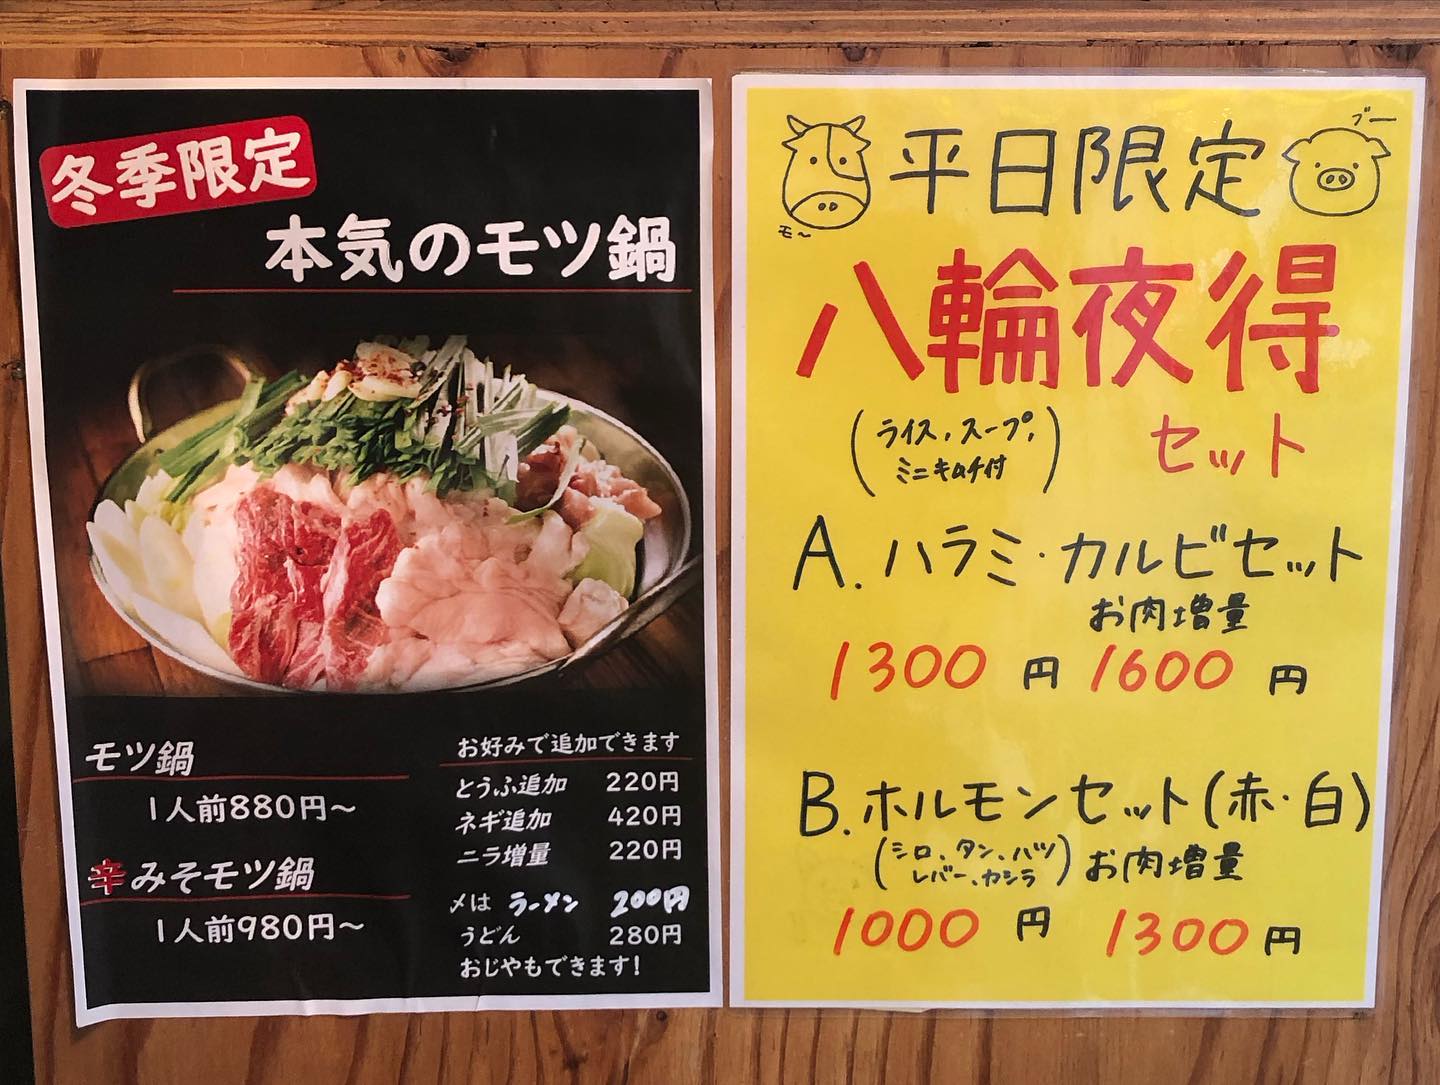 冬季限定
本気のモツ鍋
モツ鍋
1人前880円〜
辛みそモツ鍋
1人前980円〜
お好みで追加できます
とうふ追加 220円
ネギ追加 420円
ニラ増量 220円
〆は ラーメン 200円
うどん 280円
おじやもできます!
平日限定
モ〜
ブー
八輪夜得
セット
(ライス、スープ、
ミニキムチ付)
A.ハラミ・カルビセット
お肉増量
1300円 1600円
B.ホルモンセット(赤・白)
(シロ、タン、ハツ
レバー、カシラ)お肉増量
1000円 1300円